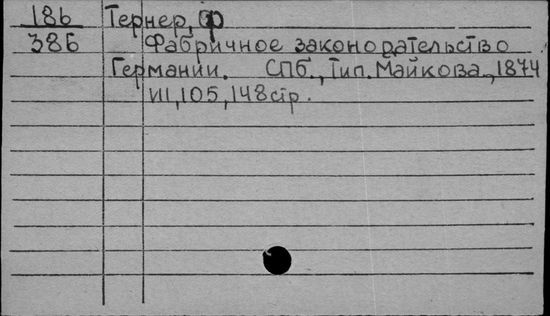 186 Тернер, Ф
386 Фабричное законодательство
Германии. СПб., Тип. Майкова, 1874
VII, 105, 148 стр.